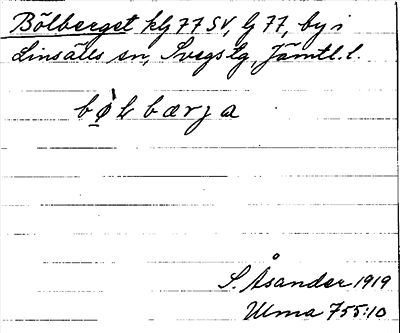 Bölberget klj 77 SV, lj 77, by i
Linsälls sn, Svegs lg, Jämtl. l.
bø̀lbærja
S. Åsander 1919
Ulma 755:10